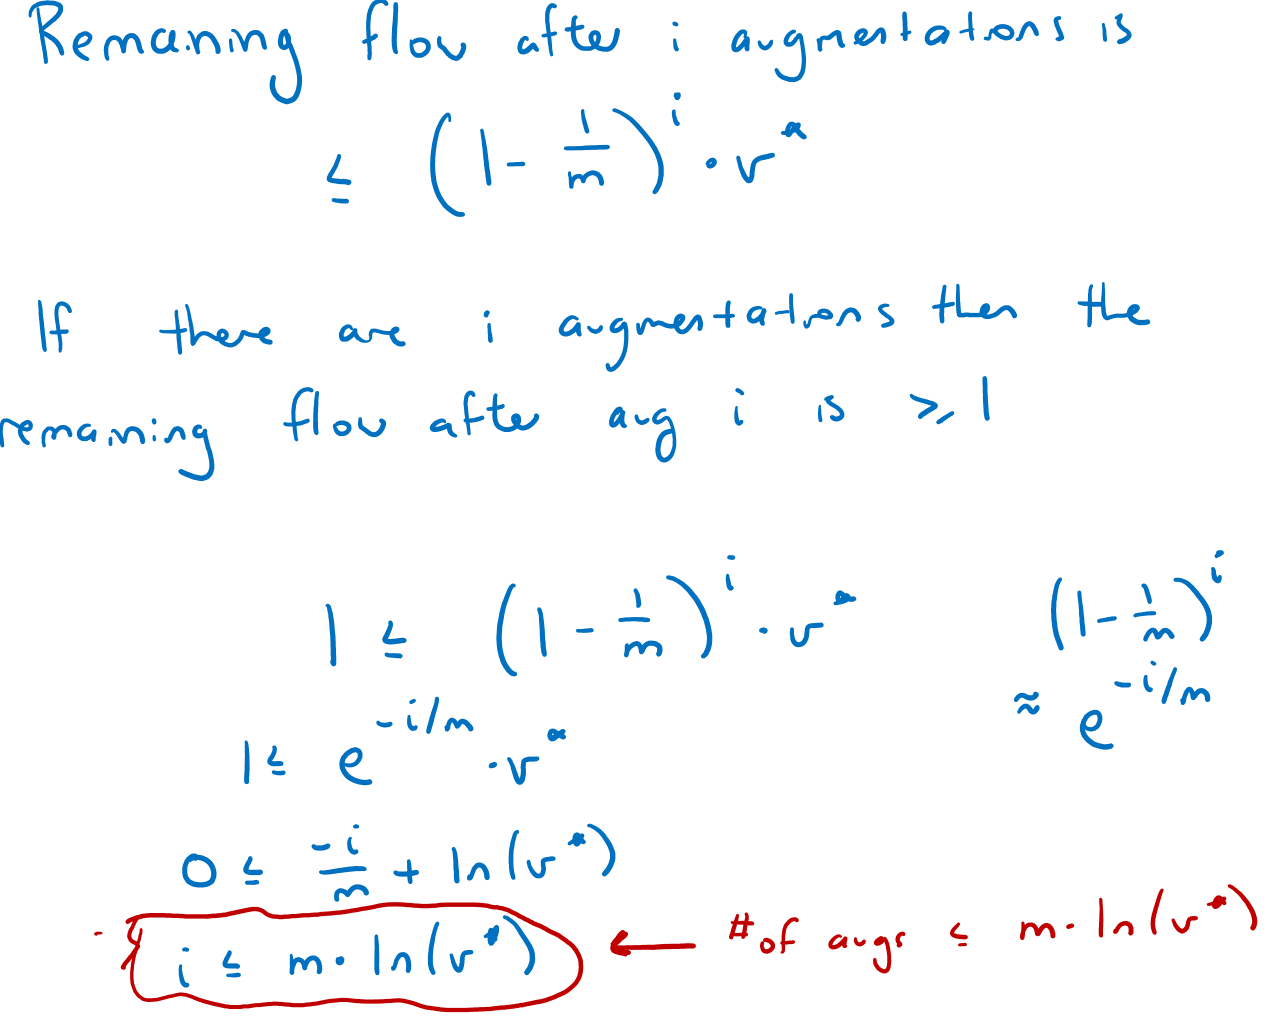 Remaining flow after i augmentations is
≤ (1 - 1/m)^i · v*
If there are i augmentations then the
remaining flow after aug i is ≥ 1
1 ≤ (1 - 1/m)^i · v* (1 - 1/m)^i
1 ≤ e^{-i/m} · v* ≈ e^{-i/m}
0 ≤ -i/m + ln(v*)
i ≤ m · ln(v*) ← # of augs ≤ m · ln(v*)